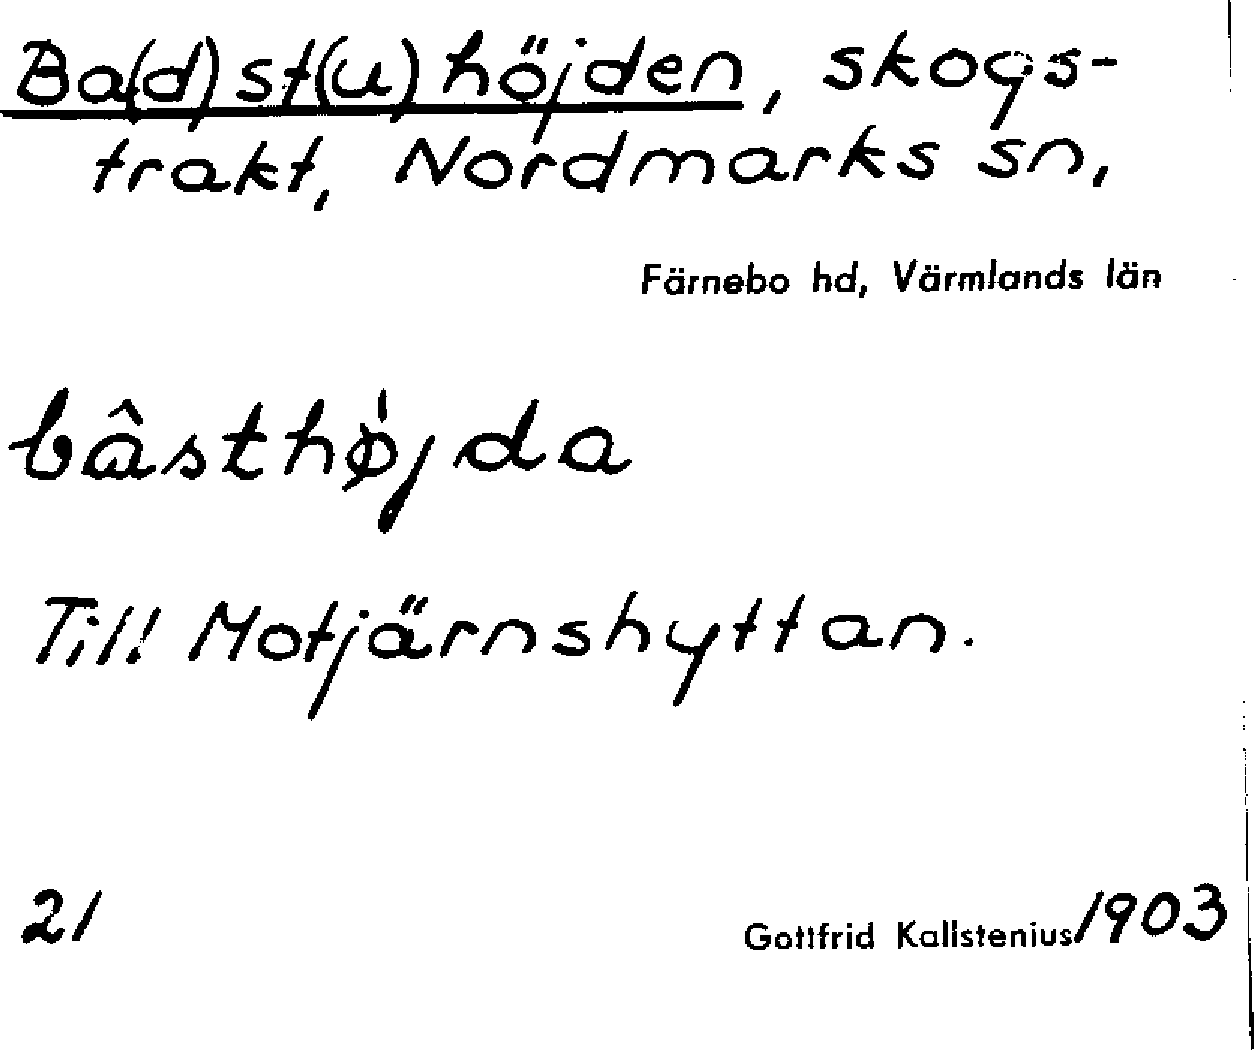 Ba(d)st(u)höjden, skogs-
trakt, Nordmarks sn,
Färnebo hd, Värmlands län
bâsthø̀jda
Till Motjärnshyttan.
21
Gottfrid Kallstenius/1903